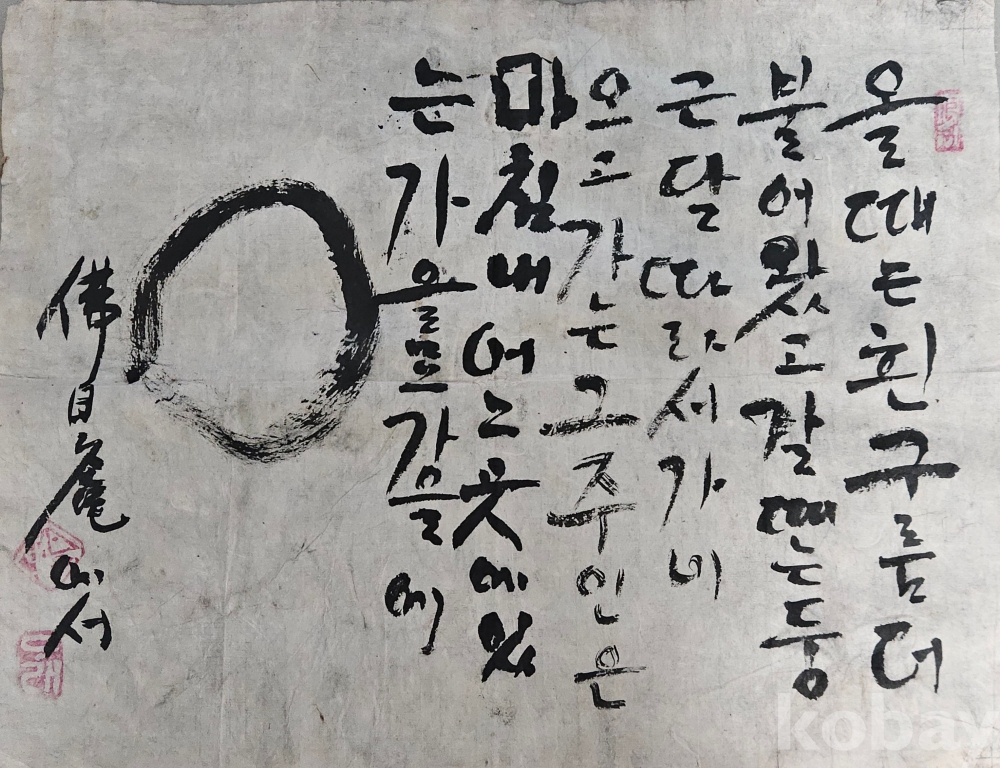 올때는흰구름더
불어왔고갈때는둥
근달따라서가네
오고가는그주인은
마침내어느곳에있
는가 을묘가을에
佛日庵에서
kobay